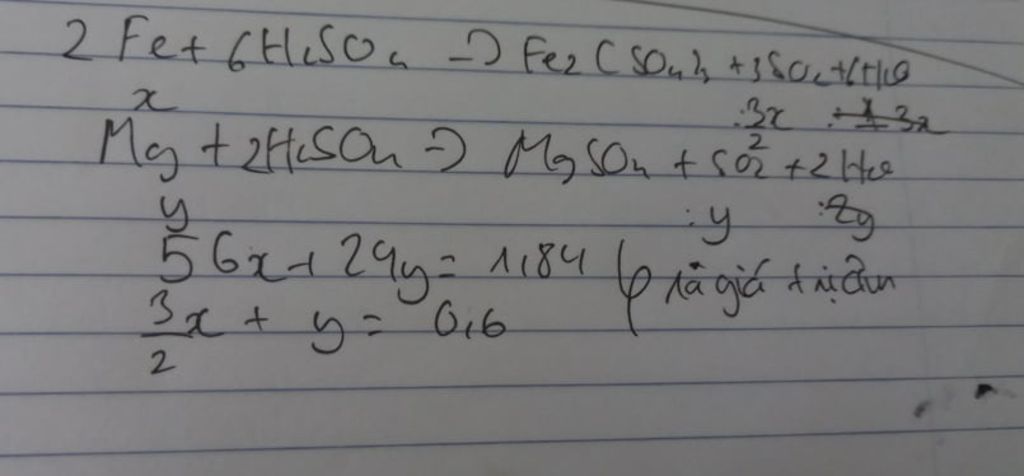 2Fe + 6H2SO4 → Fe2(SO4)3 + 3SO2 + 6H2O
x : 3x/2 : 3x
Mg + 2H2SO4 → MgSO4 + SO2 + 2H2O
y : y : 2y
56x + 24y = 1,84
3/2 x + y = 0,6
ra giá trị âm